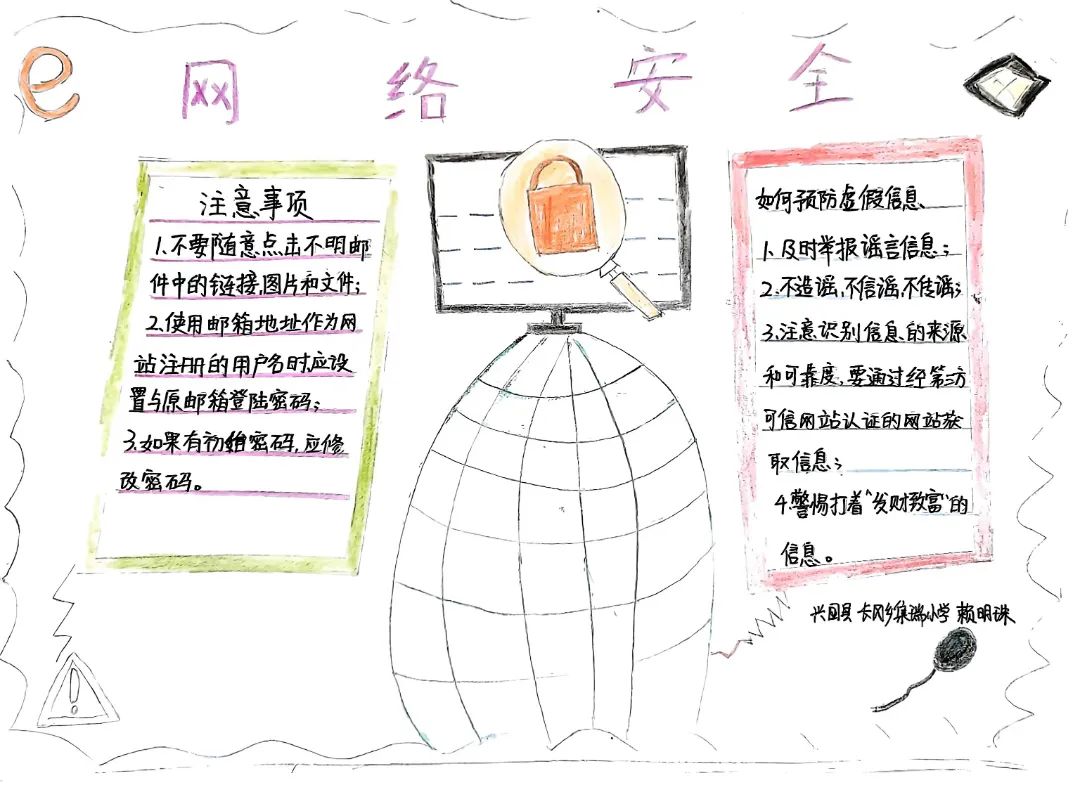 e 网络安全
注意事项
1.不要随意点击不明邮
件中的链接,图片和文件;
2.使用邮箱地址作为网
站注册的用户名时,应设
置与原邮箱登陆密码;
3.如果有初始密码,应修
改密码。
如何预防虚假信息
1.及时举报谣言信息;
2.不造谣,不信谣,不传谣;
3.注意识别信息的来源
和可靠度,要通过经第三方
可信网站认证的网站获
取信息;
4.警惕打着“发财致富”的
信息。
兴国县 乡集瑞小学 赖明珠
!